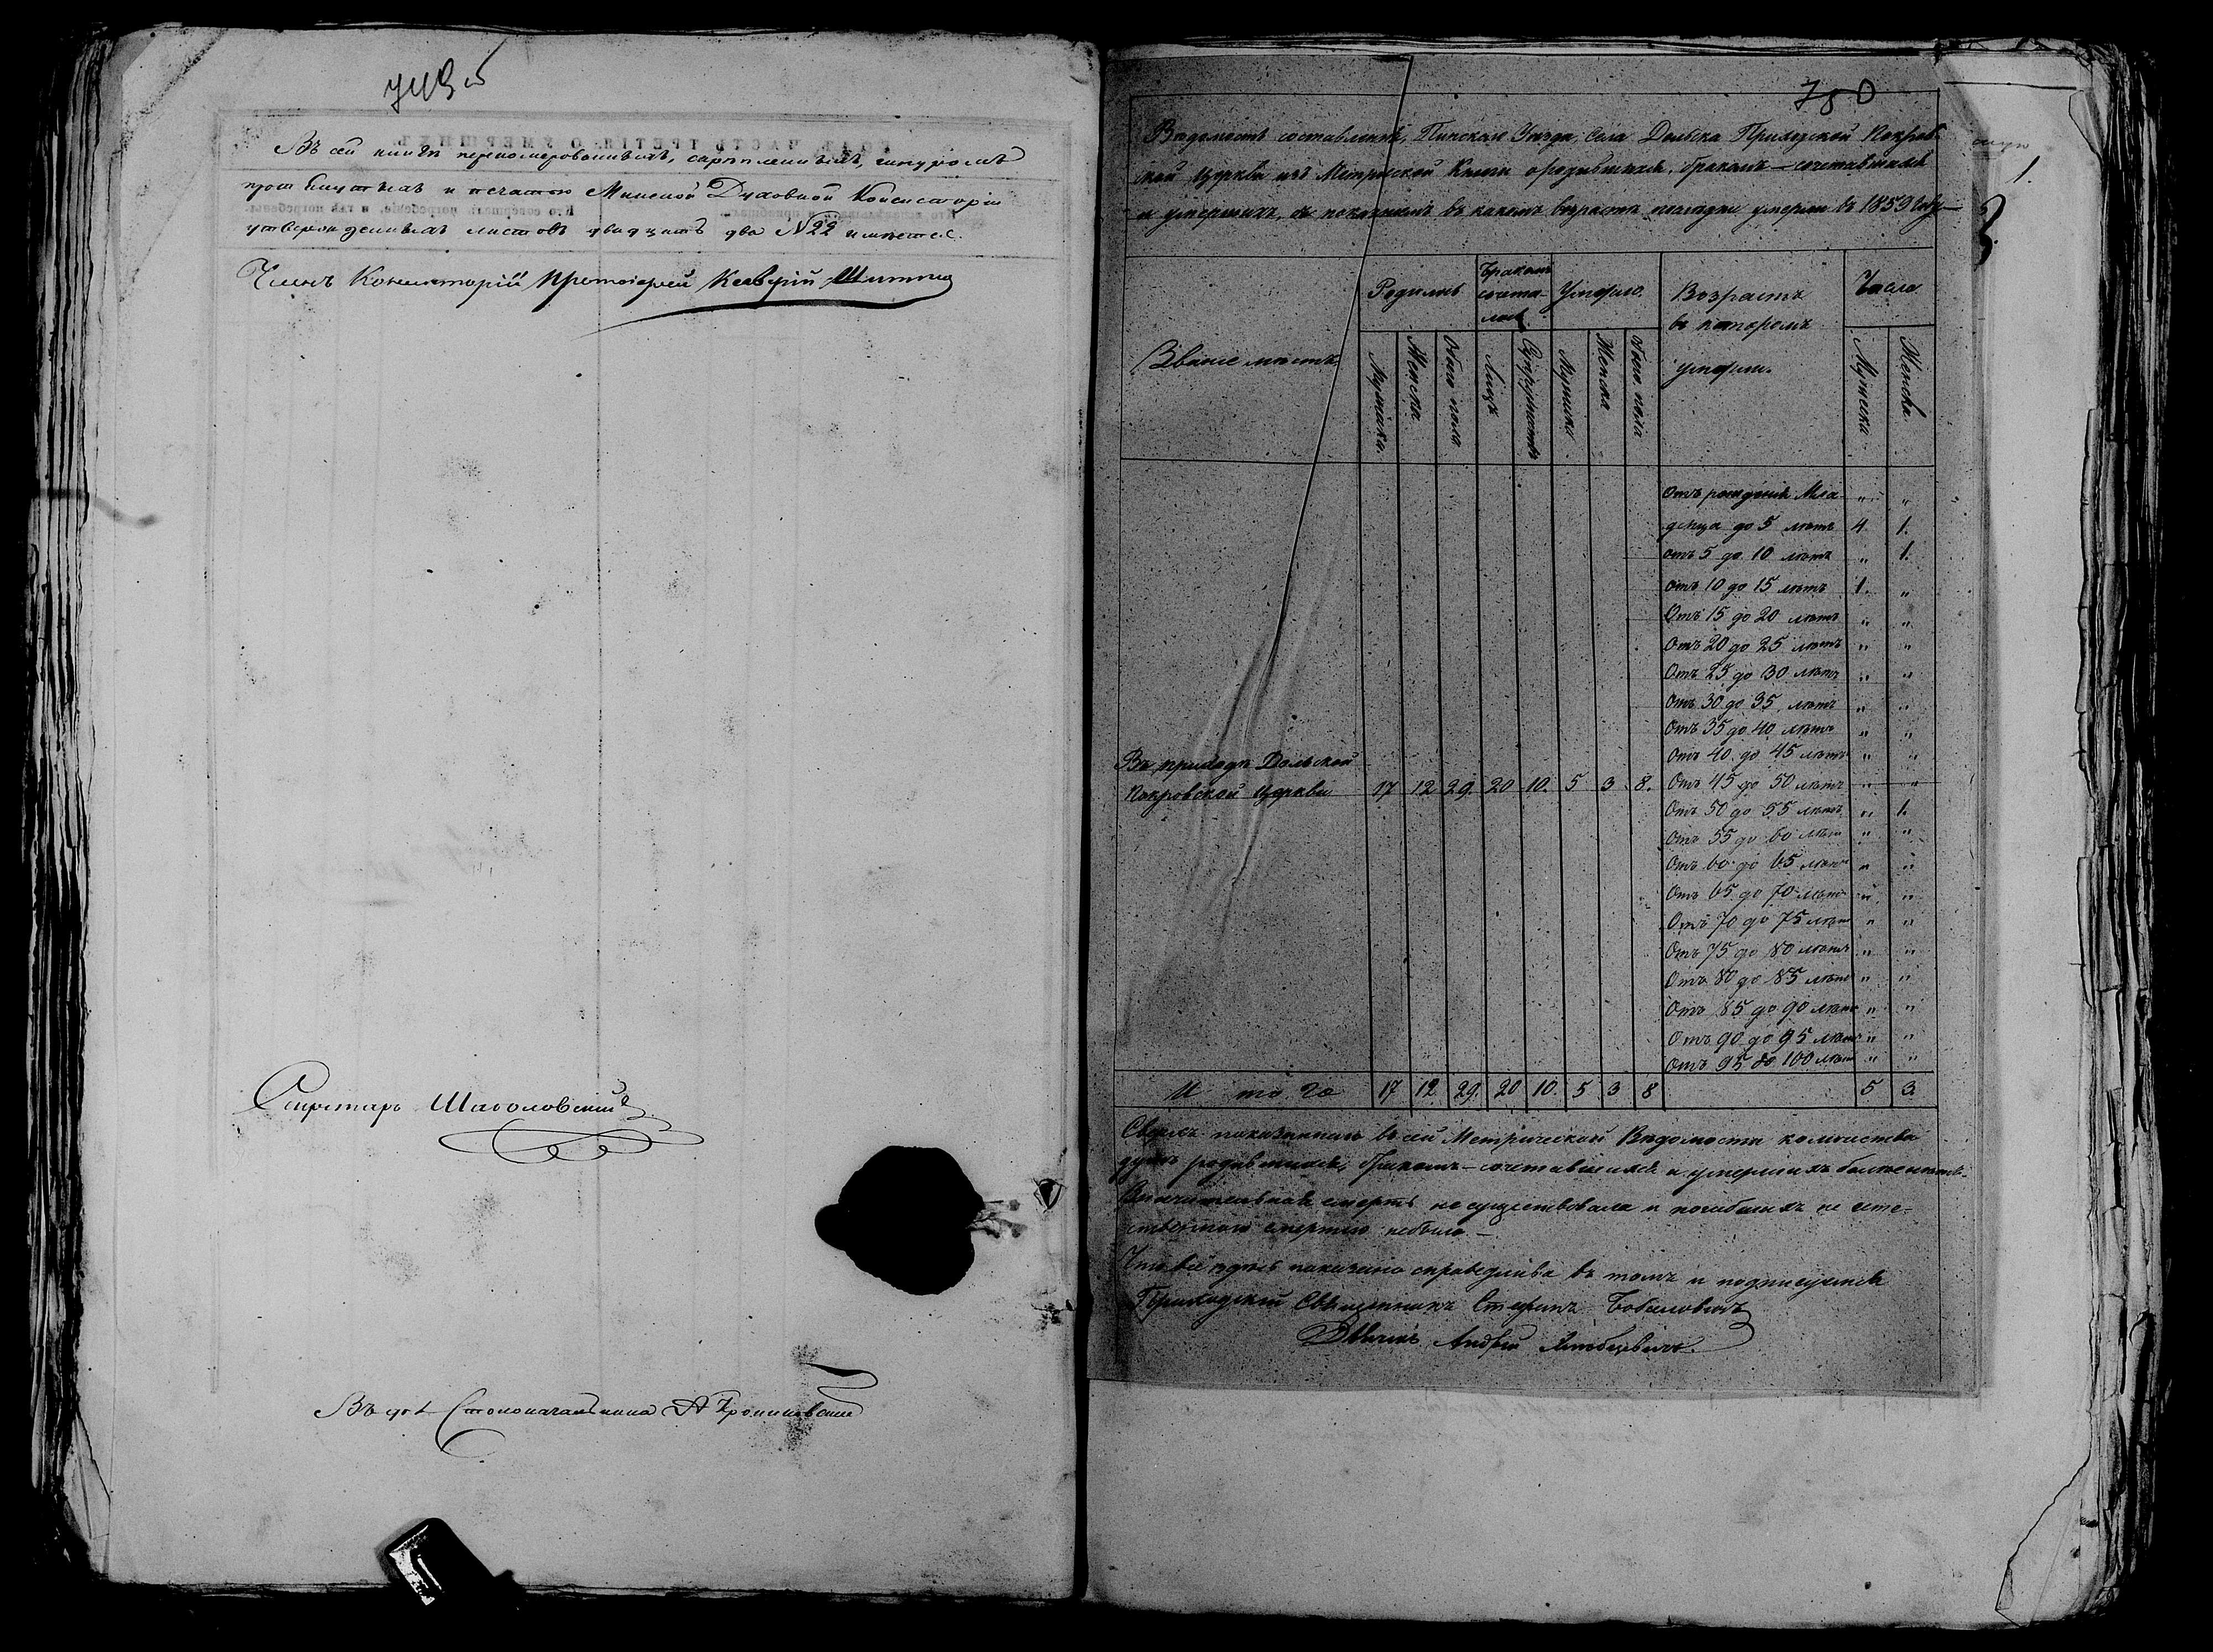 749 об
Въ сей книгѣ перенумерованныхъ, скрѣпленныхъ, шнуромъ
прошнурованныхъ и печатью Минской Духовной Консисторіи
утвержденныхъ листовъ двадцать два №22 имѣется.
Членъ Консисторіи Протоіерей Ксаверій
Секретарь
Въ дол. Столоначальника
750
Вѣдомость составленная, Пинскаго Уѣзда, Села Дольска Приходской Покров-
ской Церкви изъ Метрической Книги о родившихся, бракомъ-сочетавшихся
и умершихъ, съ показаніемъ въ какомъ возрастѣ сколько умерли въ 1859 году
1.
Званіе мѣстъ
Родилось
Бракомъ
сочета-
лось
Умерло.
Возрастъ
въ которомъ
умерли.
Число
Мужска.
Женска.
Обоего пола.
Лицъ
Супружествъ
Мужска.
Женска
Обоего пола
Мужеска
Женска
Отъ рожденія Мла- " "
денца до 5 лѣтъ 4. 1.
отъ 5 до 10 лѣтъ " 1.
отъ 10 до 15 лѣтъ 1. "
Отъ 15 до 20 лѣтъ " "
Отъ 20 до 25 лѣтъ " "
Отъ 25 до 30 лѣтъ " "
Отъ 30 до 35 лѣтъ " "
Отъ 35 до 40 лѣтъ " "
Отъ 40 до 45 лѣтъ " "
Въ приходѣ Дольской
Покровской Церкви 17 12 29. 20 10. 5 3 8. Отъ 45 до 50 лѣтъ " "
Отъ 50 до 55 лѣтъ " 1.
Отъ 55 до 60 лѣт " "
Отъ 60 до 65 лѣтъ " "
Отъ 65 до 70 лѣтъ " "
Отъ 70 до 75 лѣт " "
Отъ 75 до 80 лѣтъ " "
Отъ 80 до 85 лѣтъ " "
Отъ 85 до 90 лѣтъ " "
Отъ 90 до 95 лѣтъ " "
Отъ 95 до 100 лѣт " "
Итого 17 12 29. 20 10. 5 3 8 5 3.
Сверхъ показаннаго въ сей Метрической Вѣдомости количества
душъ родившихся, бракомъ-сочетавшихся и умершихъ болѣе нѣтъ.
смерть не существовала и погибшихъ не есте-
ственною смертію небыло.—
Что всё здѣсь показано справедливо въ томъ и подписуемся
Приходскій Священникъ Стефанъ
Дьячекъ Андрей